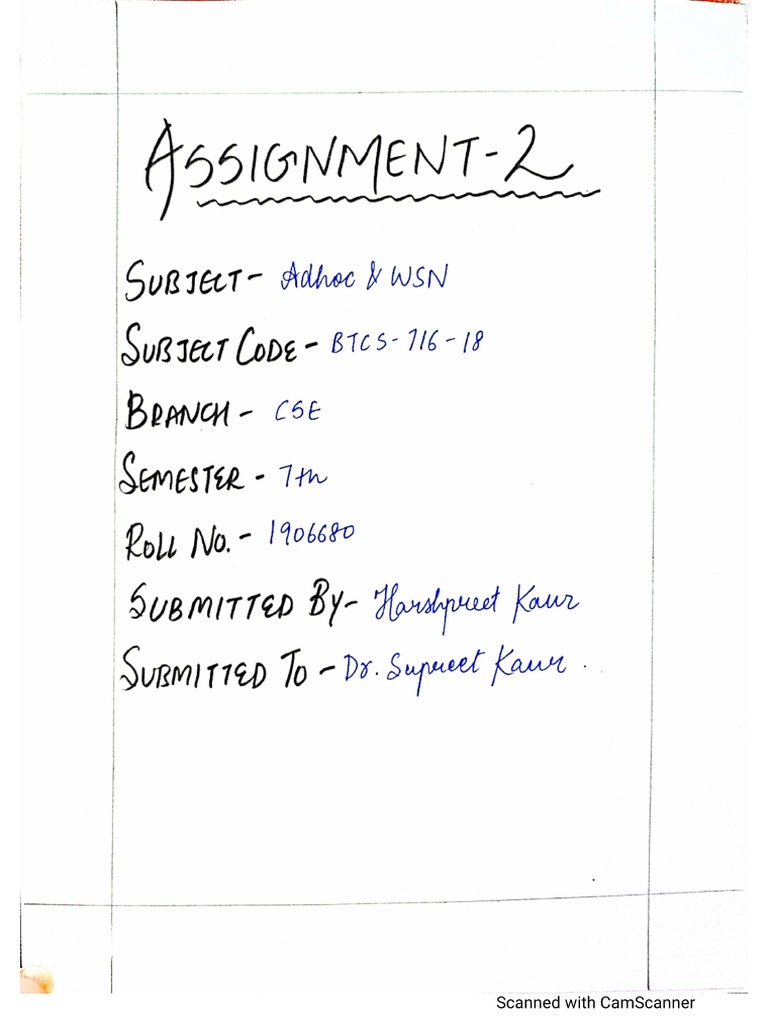 ASSIGNMENT-2
SUBJECT- Adhoc & WSN
SUBJECT CODE- BTCS-716-18
BRANCH- CSE
SEMESTER- 7th
ROLL NO.- 1906680
SUBMITTED BY- Harshpreet Kaur
SUBMITTED TO- Dr. Supreet Kaur.
Scanned with CamScanner